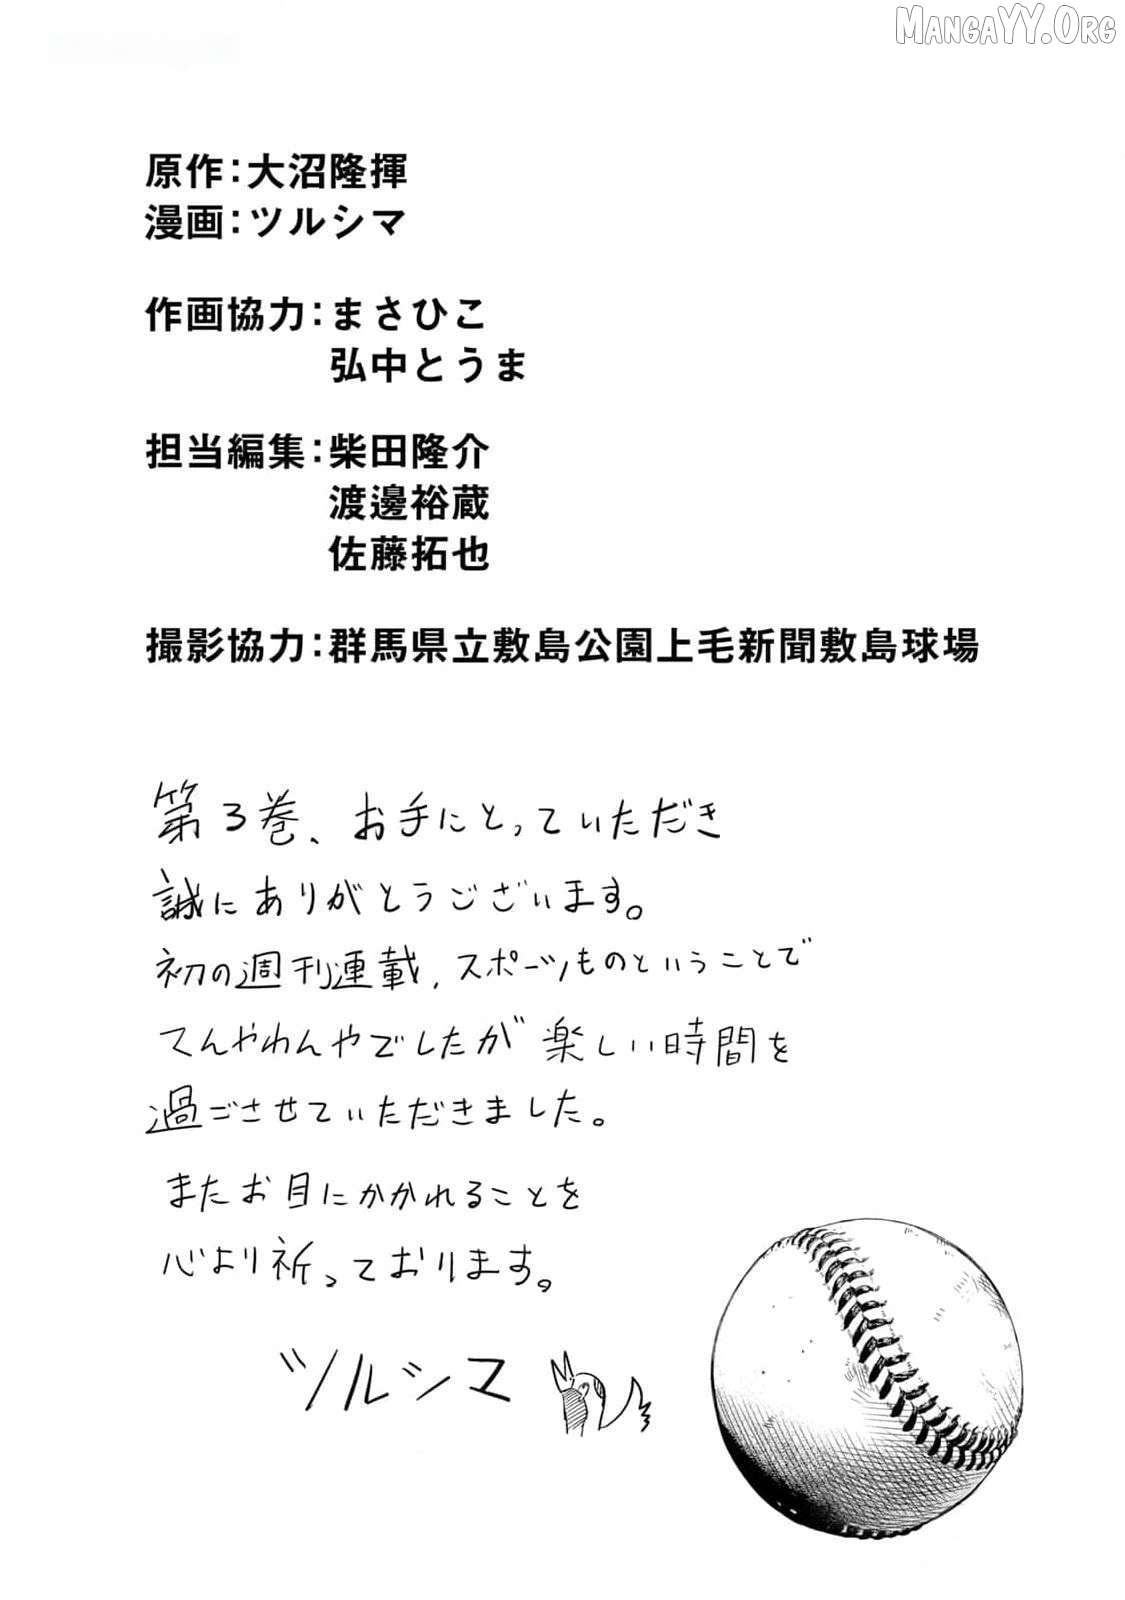 MANGAYY.ORG
原作：大沼隆揮
漫画：ツルシマ
作画協力：まさひこ
弘中とうま
担当編集：柴田隆介
渡邊裕蔵
佐藤拓也
撮影協力：群馬県立敷島公園上毛新聞敷島球場
第3巻、お手にとっていただき
誠にありがとうございます。
初の週刊連載、スポーツものということで
てんやわんやでしたが楽しい時間を
過ごさせていただきました。
またお目にかかれることを
心より祈っております。
ツルシマ